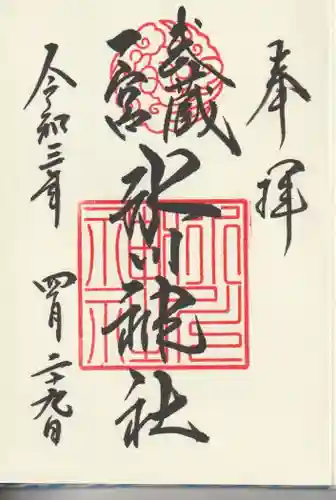 奉拝
武蔵
一宮
氷川神社
令和三年
四月二十九日